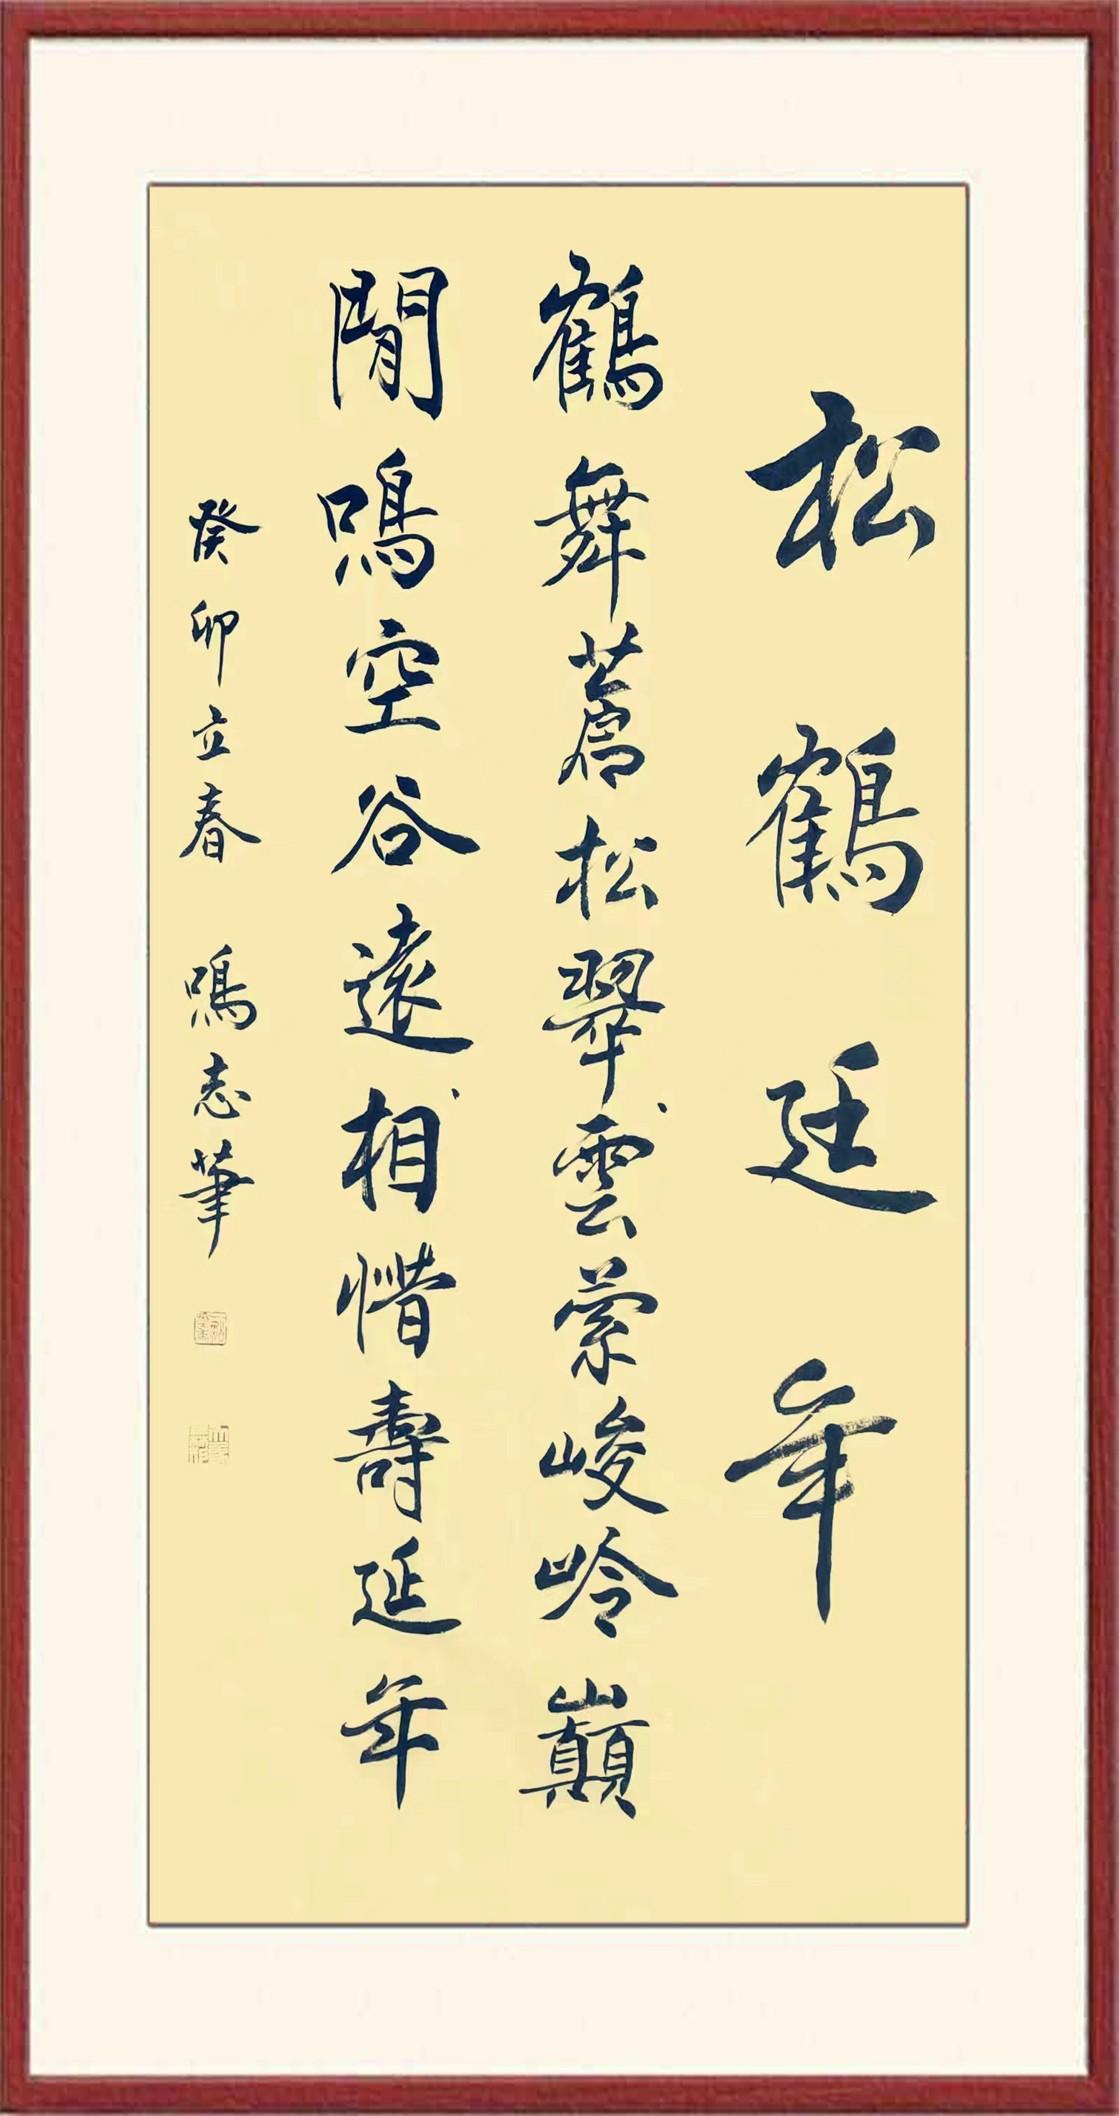 松鶴廷年
鶴舞蒼松翠雲萦峻岭巔
閒鳴空谷遠相惜壽延年
癸卯立春 鳴志筆